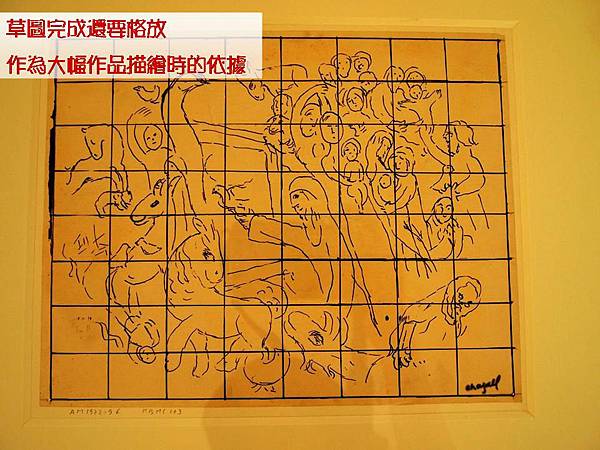 草圖完成還要格放
作為大幅作品描繪時的依據
chagall
AM 1972-96 MBMC 103